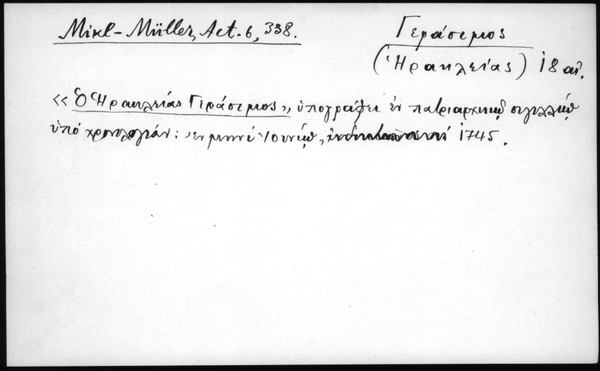 Mikl-Müller, Act. 6, 338.
Γεράσιμος
(Ἡρακλείας) 18 αἰ.
«Ὁ Ἡρακλείας Γεράσιμος» ὑπογράφει ἐν πατριαρχικῷ σιγιλλίῳ
ὑπό χρονολογίαν: ἐν μηνί Ἰουνίῳ, 1745.